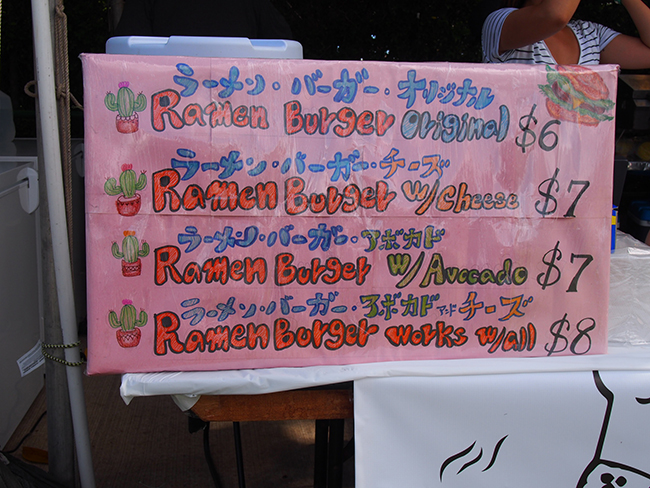 ラーメン・バーガー・オリジナル
Ramen Burger Original $6
ラーメン・バーガー・チーズ
Ramen Burger w/cheese $7
ラーメン・バーガー・アボカド
Ramen Burger w/Avocado $7
ラーメン・バーガー・アボカドアンドチーズ
Ramen Burger works w/all $8